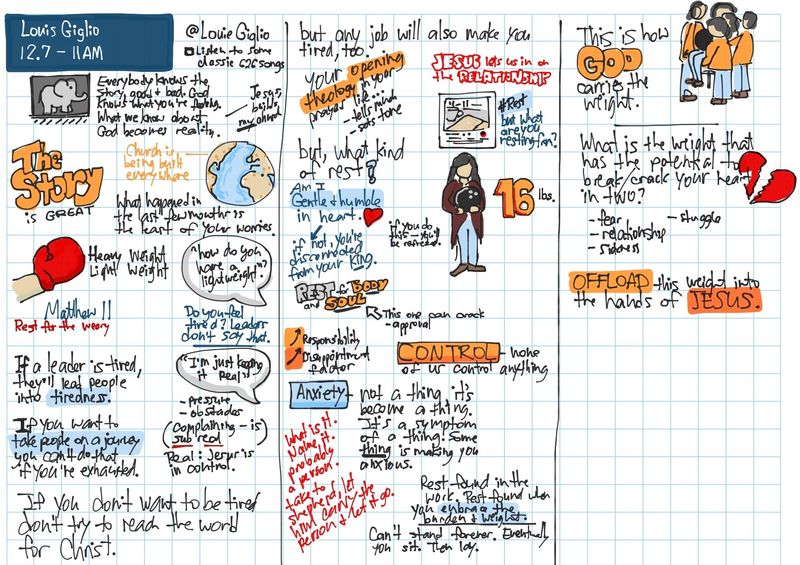 Louis Giglio
12.7 - 11AM
@Louie Giglio
Listen to some
classic 62K songs
Everybody knows the
story, good & bad. God
knows what you're feeling.
What we know about
God becomes reality.
Jesus
builds
my church
The
Story
is GREAT
Church is
being built
everywhere
What happened in
the last few months is
the least of your worries.
Heavy Weight
Light Weight
"how do you
have a
lightweight"?
Matthew 11
Rest for the weary
Do you feel
tired? Leaders
don't say that.
If a leader is tired,
they'll lead people
into tiredness.
"I'm just keeping
it real"
- pressure
- obstacles
(complaining - is
sub real)
Real: Jesus is
in control.
If you want to
take people on a journey
you can't do that
if you're exhausted.
If you don't want to be tired
don't try to reach the world
for Christ.
but any job will also make you
tired, too.
your opening
theology in your
prayer life...
- tells much
- sets tone
JESUS lets us in on
the RELATIONSHIP
#Rest
but what
are you
resting from?
but, what kind
of rest?
Am I
Gentle & humble
in heart.
if not, you're
disconnected
from your King.
if you do
this - you'll
be refreshed.
16 lbs.
REST for BODY
and SOUL
This one can crack
- approval
Responsibility
Disappointment
factor
CONTROL - none
of us control anything
Anxiety - not a thing it's
become a thing.
It's a symptom
of a thing. Some
thing is making you
anxious.
What is it.
Name it.
probably
a person.
take to
shepherd, let
him carry the
person & let it go.
Rest found in the
work. Rest found when
you embrace the
burden & weights.
Can't stand forever. Eventually
you sit. Then lay.
This is how
GOD
carries the
weight.
What is the weight that
has the potential to
break/crack your heart
in two?
- fear
- struggle
- relationship
- sickness
OFFLOAD this weight into
the hands of JESUS.